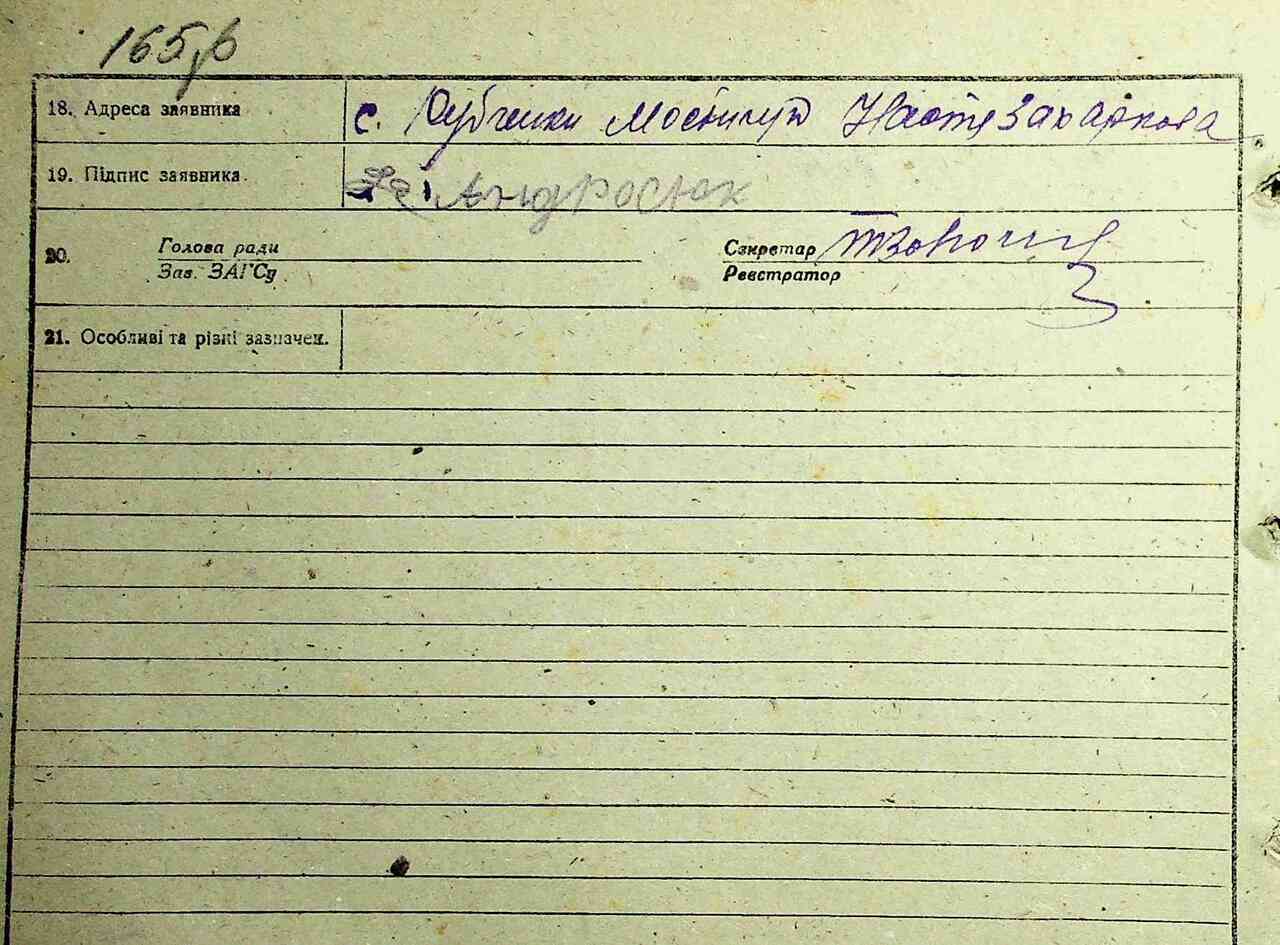 165,в
18. Адреса заявника с. Рубченки Настя Захаркова
19. Підпис заявника. За Андросюк
20. Голова ради Секретар
Зав. ЗАГСу Реєстратор
21. Особливі та різні зазначен.